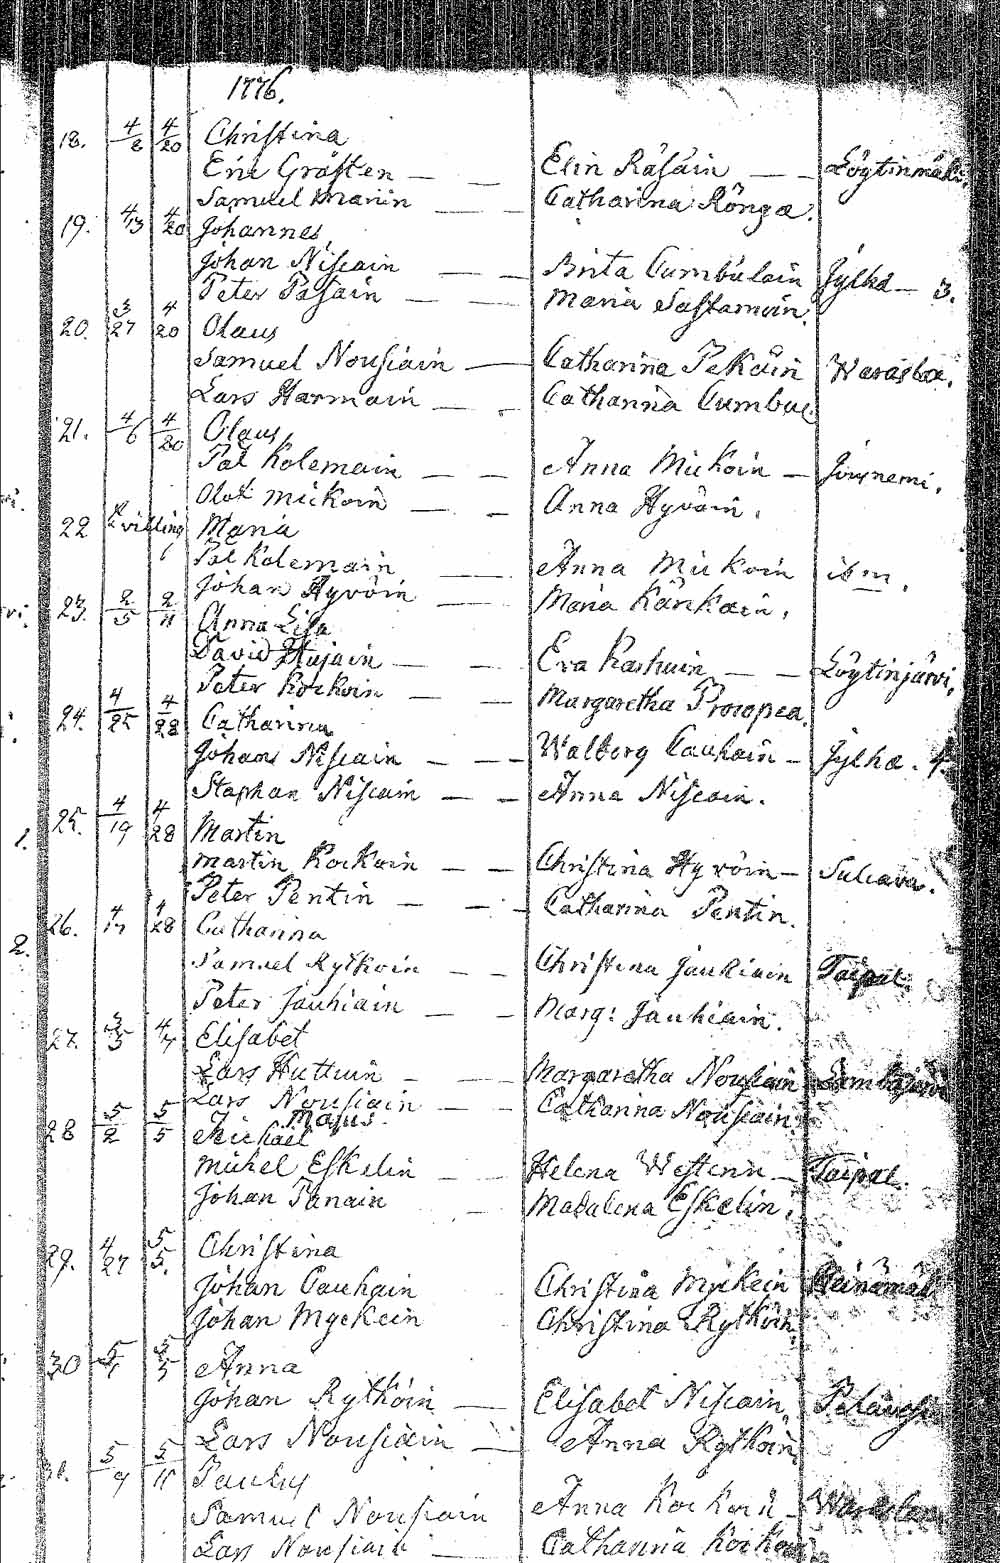 1776.
18. 4/8 4/20 Christina
Eric Gråsten — — Elin Räsäin — — Löytinmäki.
Samuel Manin — — Catharina Rönga.
19. 4/13 4/20 Johannes
Johan Niscain — — Brita Cumbulain Jylhä — 3.
Peter Pasain — — Maria Sastamoin.
20. 3/27 4/20 Olaus
Samuel Nousiain — Catharina Pekäin Warasla.
Lars Harmain — Catharina Cumbul.
21. 4/6 4/20 Olaus
Pål Kolemain — — Anna Mickoin — Jousnemi.
Olof Mickoin — — Anna Hyvöin.
22 Tvilling Maria
Pål Kolemain — Anna Mickoin ibm.
Johan Hyvöin — Maria Kånkain.
23. 2/5 2/11 Anna Lisa
David Hujain — — Eva Kashuin — — Löytinjärvi.
Peter Kockoin — — Margaretha Procopea.
24. 4/25 4/28 Catharina
Johan Niscain — — Walborg Cauhain — Jylhä. 4.
Staphan Niscain — — Anna Niscain.
25. 4/19 4/28 Martin
Martin Kockoin — — Christina Hyvöin — Sulcava.
Peter Pentin — — Catharina Pentin.
26. 4/17 4/28 Catharina
Samuel Rytkoin — — Christina Jauhiain Taipal.
Peter Jauhiain — — Marg: Jauhiain.
27. 3/3 4/7 Elisabet
Lars Huttuin — — Margaretha Nousiain
Lars Nousiain — — Catharina Nousiain.
Majus.
28 5/2 5/5 Michael
Michel Eskelin — — Helena Westenin — Taipal.
Johan Panain — Madalena Eskelin.
29. 4/27 5/5. Christina
Johan Cauhain Christina Myckein Heinämäk
Johan Myckein Christina Rytköin.
30 5/1 5/5 Anna
Johan Rytköin — Elisabet Niscain
Lars Nousiain — Anna Rytköin
31. 5/9 5/11 Paulus
Samuel Nousiain Anna Kockoin —
Lars Nousiain — Catharina Kockoin